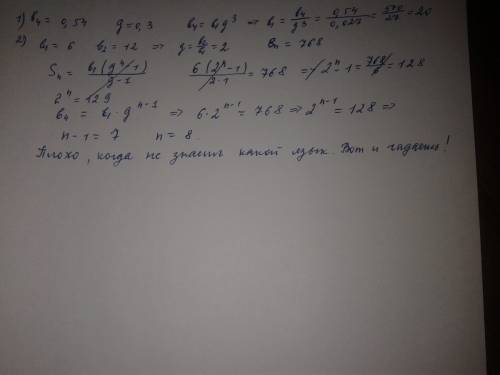 1) b₄ = 0,54 q = 0,3 b₄ = b₁q³ ⇒ b₁ = b₄/q³ = 0,54/0,027 = 540/27 = 20
2) b₁ = 6 b₂ = 12 ⇒ q = b₂/b₁ = 2 bₙ = 768
Sₙ = b₁(qⁿ-1)/(q-1) 6(2ⁿ-1)/(2-1) = 768 ⇒ 2ⁿ-1 = 768/6 = 128
2ⁿ = 129
bₙ = b₁·qⁿ⁻¹ ⇒ 6·2ⁿ⁻¹ = 768 ⇒ 2ⁿ⁻¹ = 128 ⇒
n-1 = 7 n = 8.
Плохо, когда не знаешь какой язык. Вот и гадаешь!